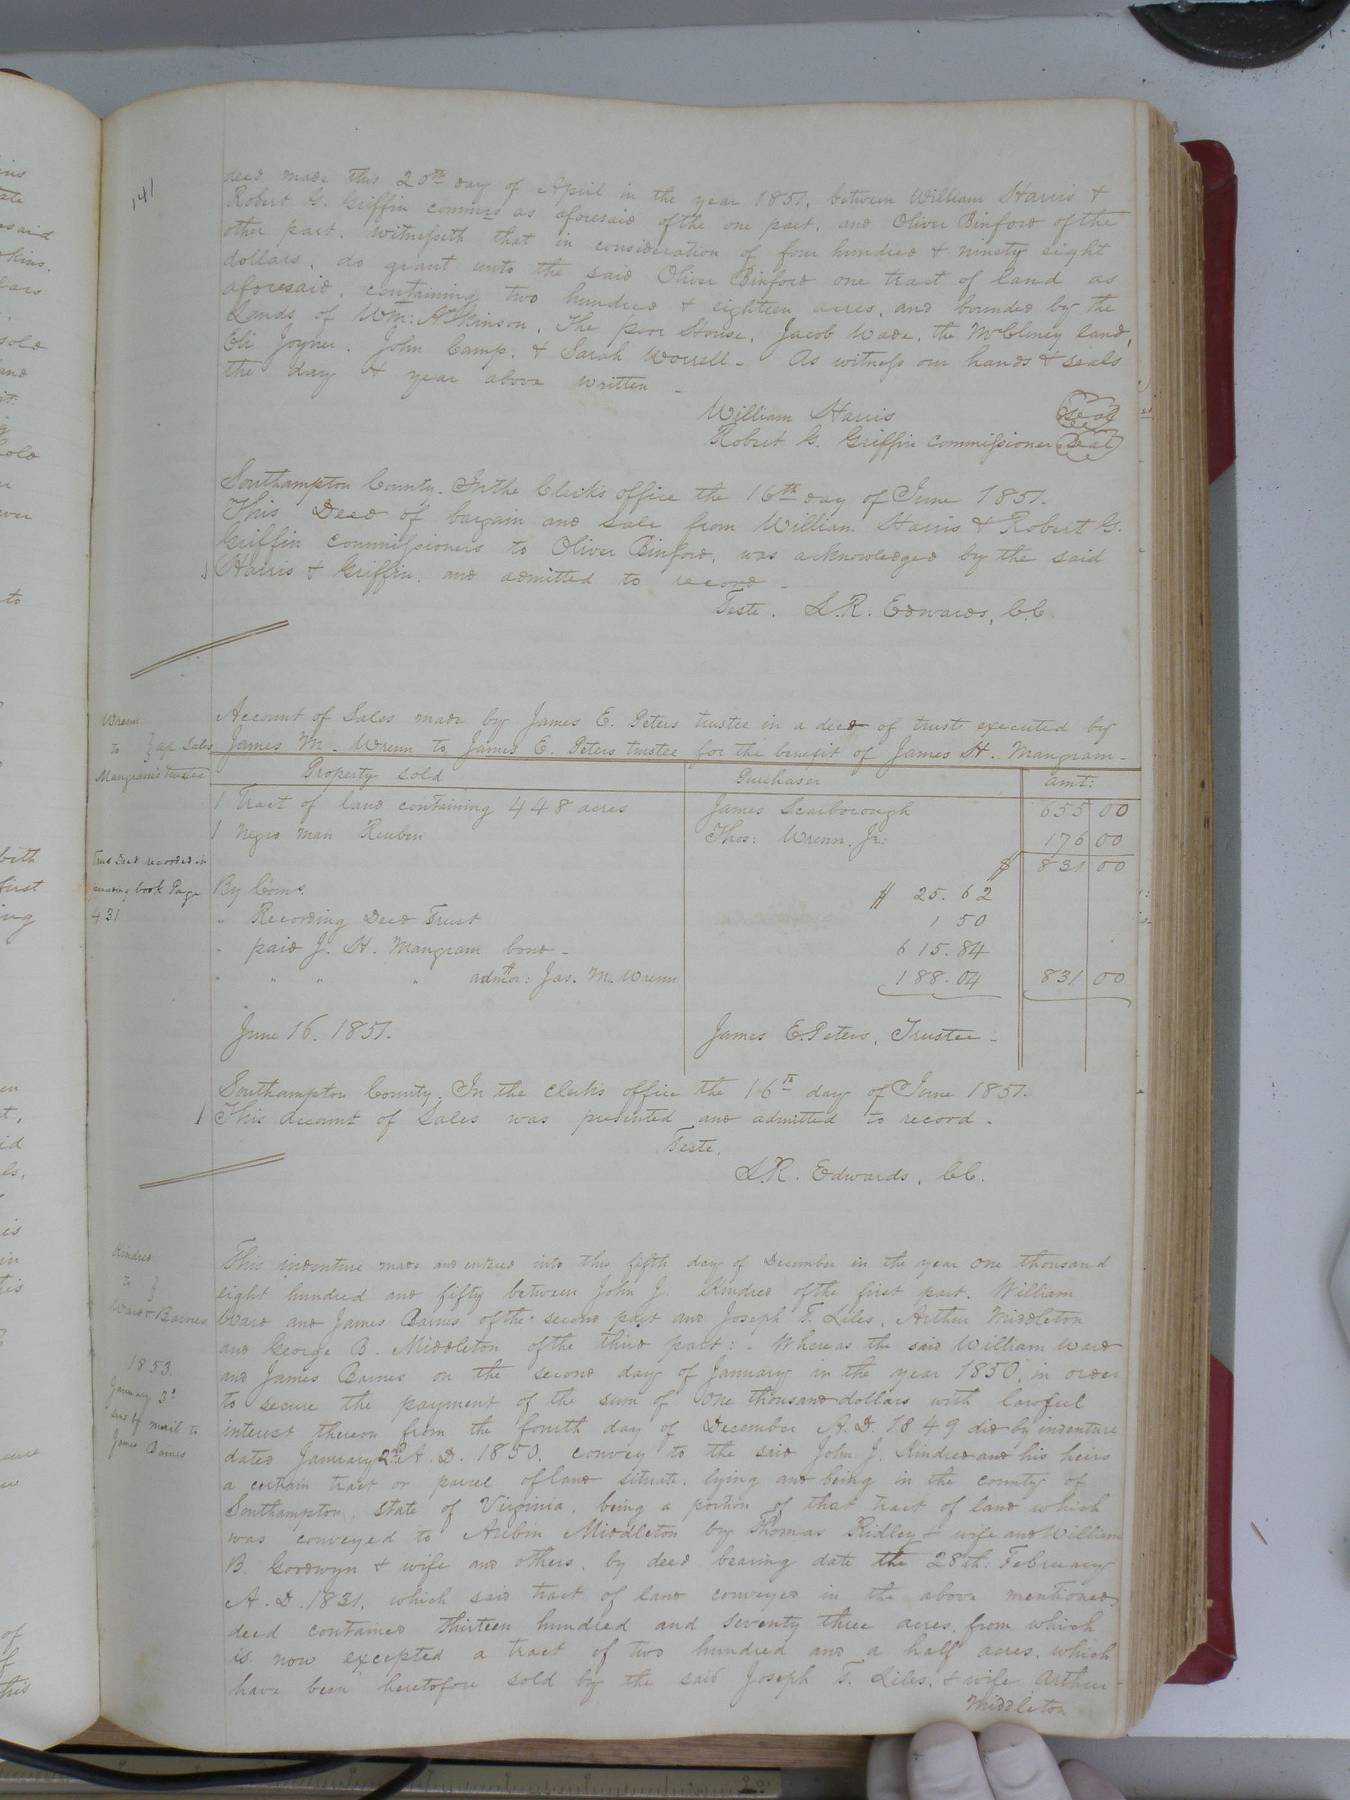 141
deed made this 20th day of April in the year 1851, between William Harris &
Robert G. Griffin commrs as aforesaid of the one part, and Oliver Binford of the
other part. Witnesseth that in consideration of four hundred & ninety eight
dollars, do grant unto the said Oliver Binford one tract of land as
aforesaid, containing two hundred & eighteen acres, and bounded by the
Lands of Wm: Atkinson, The poor House, Jacob Wade, the McCleney land,
Eli Joyner, John Camp, & Sarah Worrell - As witness our hands & seals
the day & year above written -
William Harris seal
Robert G. Griffin commissioner seal
Southampton County. In the Clerk's office the 16th day of June 1851.
This Deed of bargain and sale from William Harris & Robert G.
Griffin commissioners to Oliver Binford, was acknowledged by the said
Harris & Griffin, and admitted to record -
Teste. L.R. Edwards, C.C.
Wrenn
to } a/c Sales
Mangram's Trustee
Account of Sales made by James E. Peters trustee in a deed of trust executed by
James M. Wrenn to James E. Peters trustee for the benefit of James H. Mangram -
Property sold Purchaser amt:
1 Tract of land containing 448 acres James Scarborough 655 00
1 Negro man Reuben Thos: Wrenn, Jr: 176 00
$ 831 00
Trust Deed recorded in
book Page
431
By Coms. $ 25.62
" Recording Deed Trust 1 50
" paid J. H. Mangram bond - 615.84
" " " " admtor: Jas. M. Wrenn 188.04 831 00
June 16. 1851. James E. Peters, Trustee -
Southampton County. In the clerks office the 16th day of June 1851.
This Account of Sales was presented and admitted to record.
Teste,
L.R. Edwards, C.C.
Kindred
to }
Ward & Barnes
1853.
January 3d
sent by mail to
James Barnes
This indenture made and entered into this fifth day of December in the year one thousand
eight hundred and fifty between John J. Kindred of the first part, William
Ward and James Barnes of the second part and Joseph T. Liles, Arthur Middleton
and George B. Middleton of the third part: - Whereas the said William Ward
and James Barnes on the second day of January in the year 1850, in order
to secure the payment of the sum of one thousand dollars with lawful
interest thereon from the fourth day of December A.D. 1849 did by indenture
dated January 2nd A.D. 1850, convey to the said John J. Kindred and his heirs
a certain tract or parcel of land situate, lying and being in the county of
Southampton, state of Virginia, being a portion of that tract of land which
was conveyed to Middleton by Thomas Ridley & wife and William
B. Goodwyn & wife and others, by deed bearing date the 28th February
A.D. 1831, which said tract of land conveyed in the above mentioned
deed contained thirteen hundred and seventy three acres, from which
is now excepted a tract of two hundred and a half acres, which
have been heretofore sold by the said Joseph T. Liles, & wife Arthur
Middleton